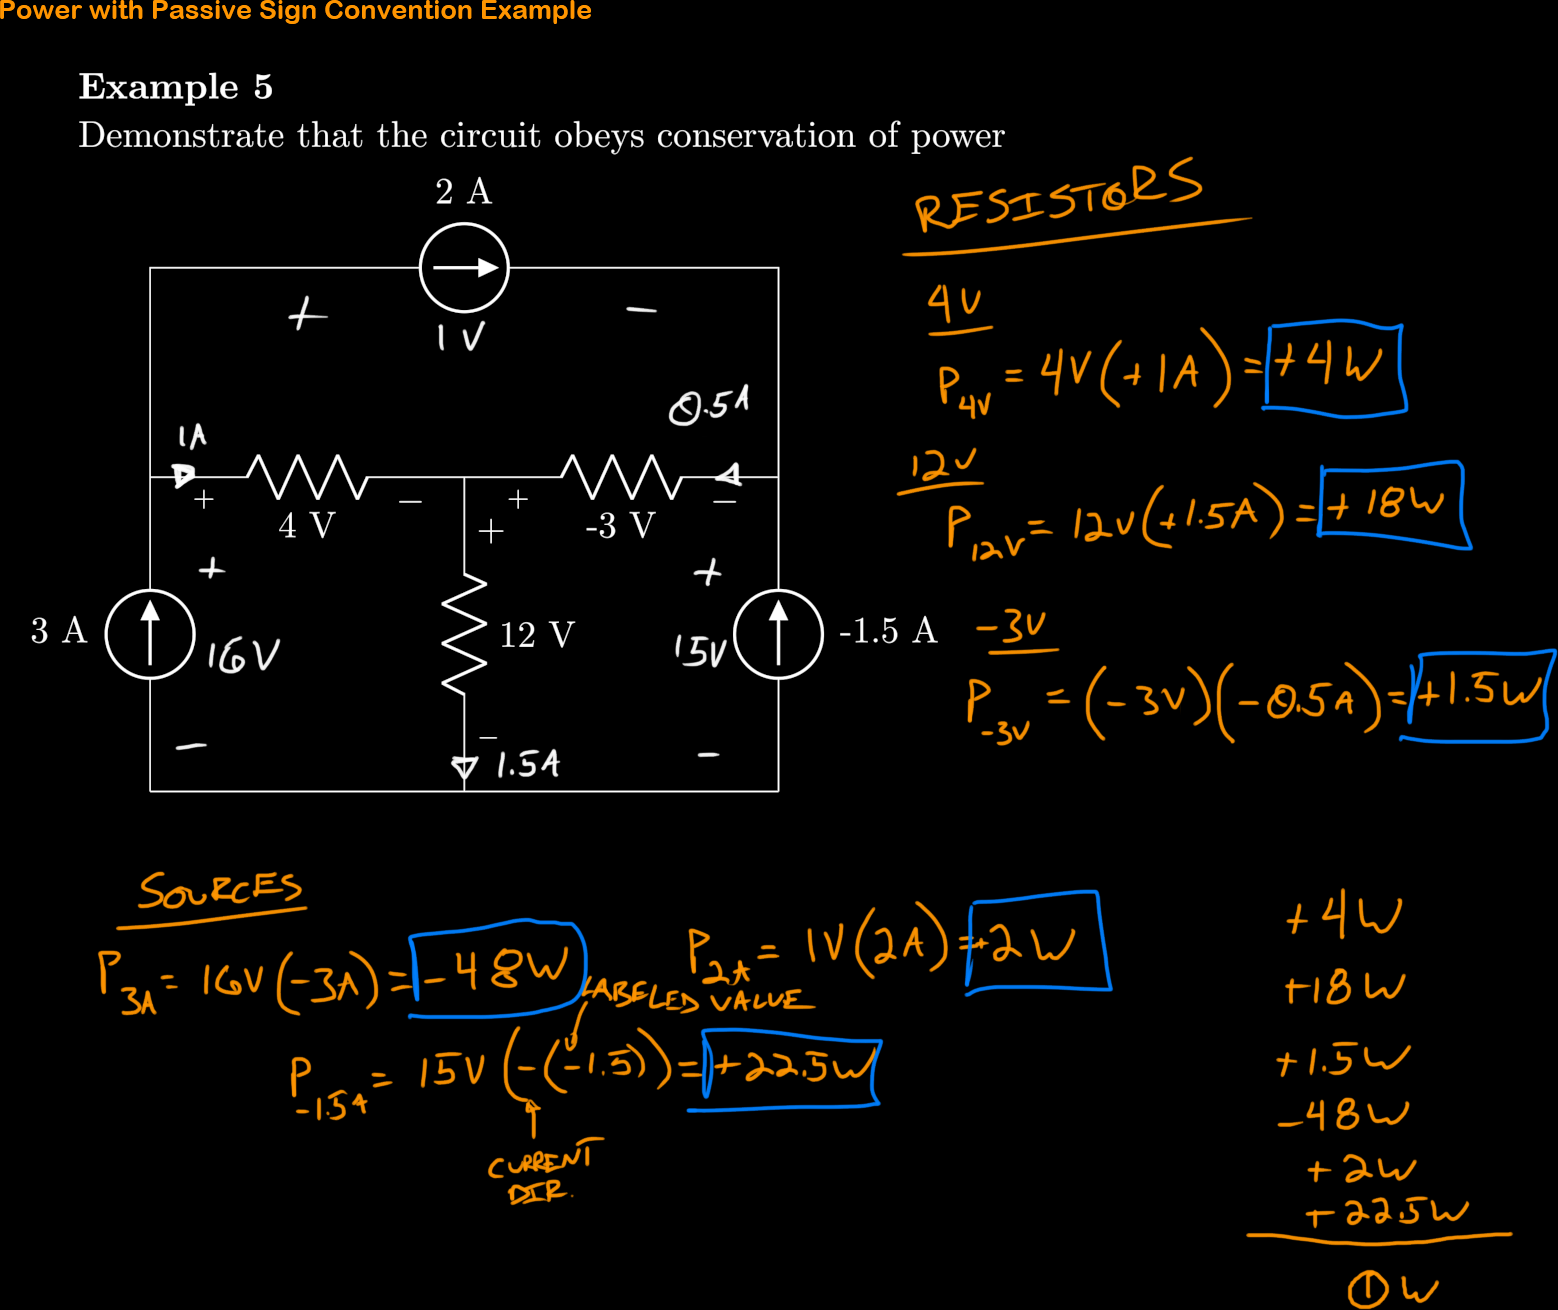 Power with Passive Sign Convention Example
Example 5
Demonstrate that the circuit obeys conservation of power
2 A
+ −
1 V
0.5A
1A
+ − + −
4 V
-3 V
+
+
+
3 A
16V
12 V
15V
-1.5 A
−
−
−
1.5A
RESISTORS
4V
P4V = 4V(+1A) = +4W
12V
P12V = 12V(+1.5A) = +18W
-3V
P-3V = (-3V)(-0.5A) = +1.5W
SOURCES
P3A = 16V(-3A) = -48W
P2A = 1V(2A) = +2W
LABELED VALUE
P-1.5A = 15V(-(-1.5)) = +22.5W
CURRENT
DIR.
+4W
+18W
+1.5W
-48W
+2W
+22.5W
0W